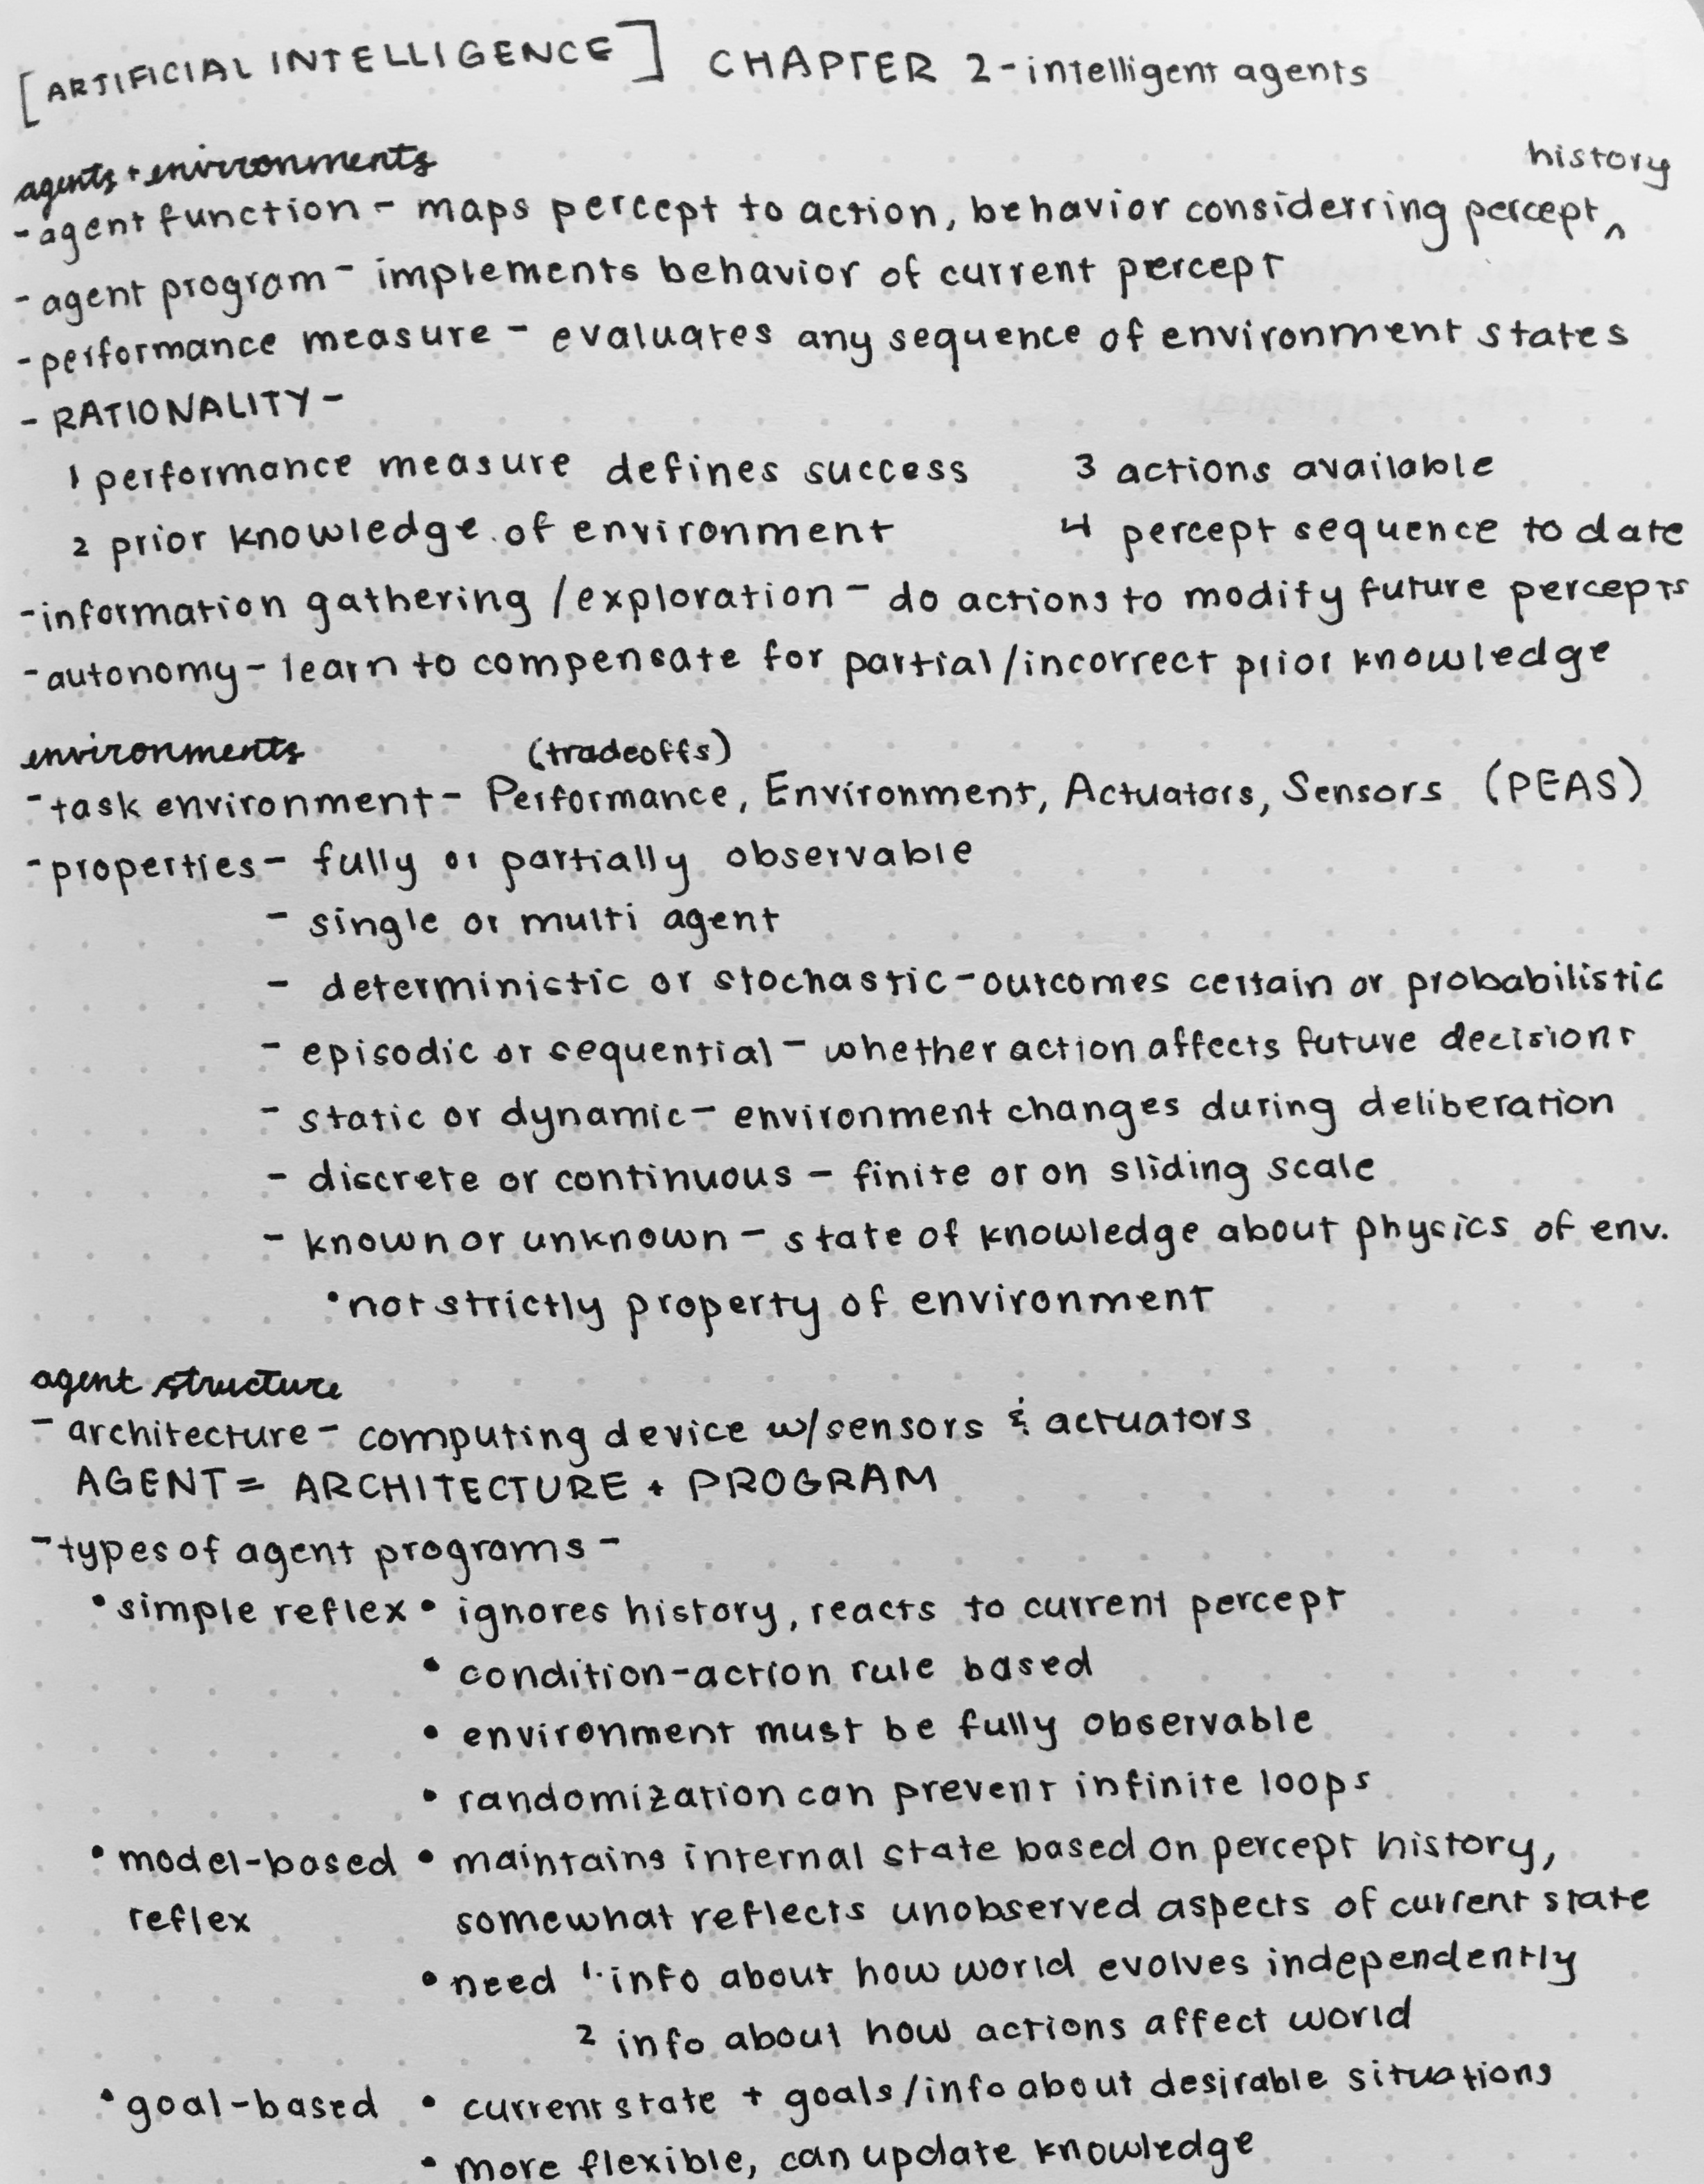 [ARTIFICIAL INTELLIGENCE] CHAPTER 2 - intelligent agents
agents + environments
history
- agent function - maps percept to action, behavior considerring percept ^
- agent program - implements behavior of current percept
- performance measure - evaluates any sequence of environment states
- RATIONALITY -
1 performance measure defines success 3 actions available
2 prior knowledge of environment 4 percept sequence to date
- information gathering / exploration - do actions to modify future percepts
- autonomy - learn to compensate for partial/incorrect prior knowledge
environments (tradeoffs)
- task environment - Performance, Environment, Actuators, Sensors (PEAS)
- properties - fully or partially observable
- single or multi agent
- deterministic or stochastic - outcomes certain or probabilistic
- episodic or sequential - whether action affects future decisions
- static or dynamic - environment changes during deliberation
- discrete or continuous - finite or on sliding scale
- known or unknown - state of knowledge about physics of env.
• not strictly property of environment
agent structure
- architecture - computing device w/sensors & actuators
AGENT = ARCHITECTURE + PROGRAM
- types of agent programs -
• simple reflex • ignores history, reacts to current percept
• condition-action rule based
• environment must be fully observable
• randomization can prevent infinite loops
• model-based • maintains internal state based on percept history,
reflex somewhat reflects unobserved aspects of current state
• need 1. info about how world evolves independently
2 info about how actions affect world
• goal-based • current state + goals/info about desirable situations
• more flexible, can update knowledge